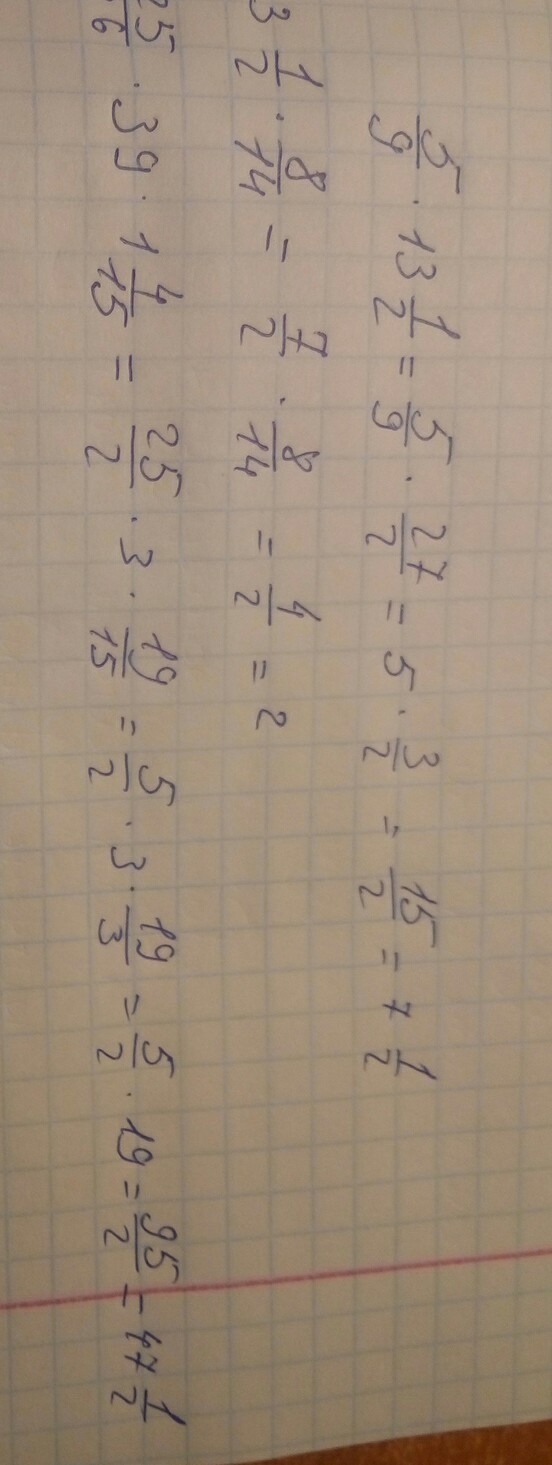 5/9 · 13 1/2 = 5/9 · 27/2 = 5 · 3/2 = 15/2 = 7 1/2
3 1/2 · 8/14 = 7/2 · 8/14 = 4/2 = 2
25/6 · 39 · 1 4/15 = 25/2 · 3 · 19/15 = 5/2 · 3 · 19/3 = 5/2 · 19 = 95/2 = 47 1/2